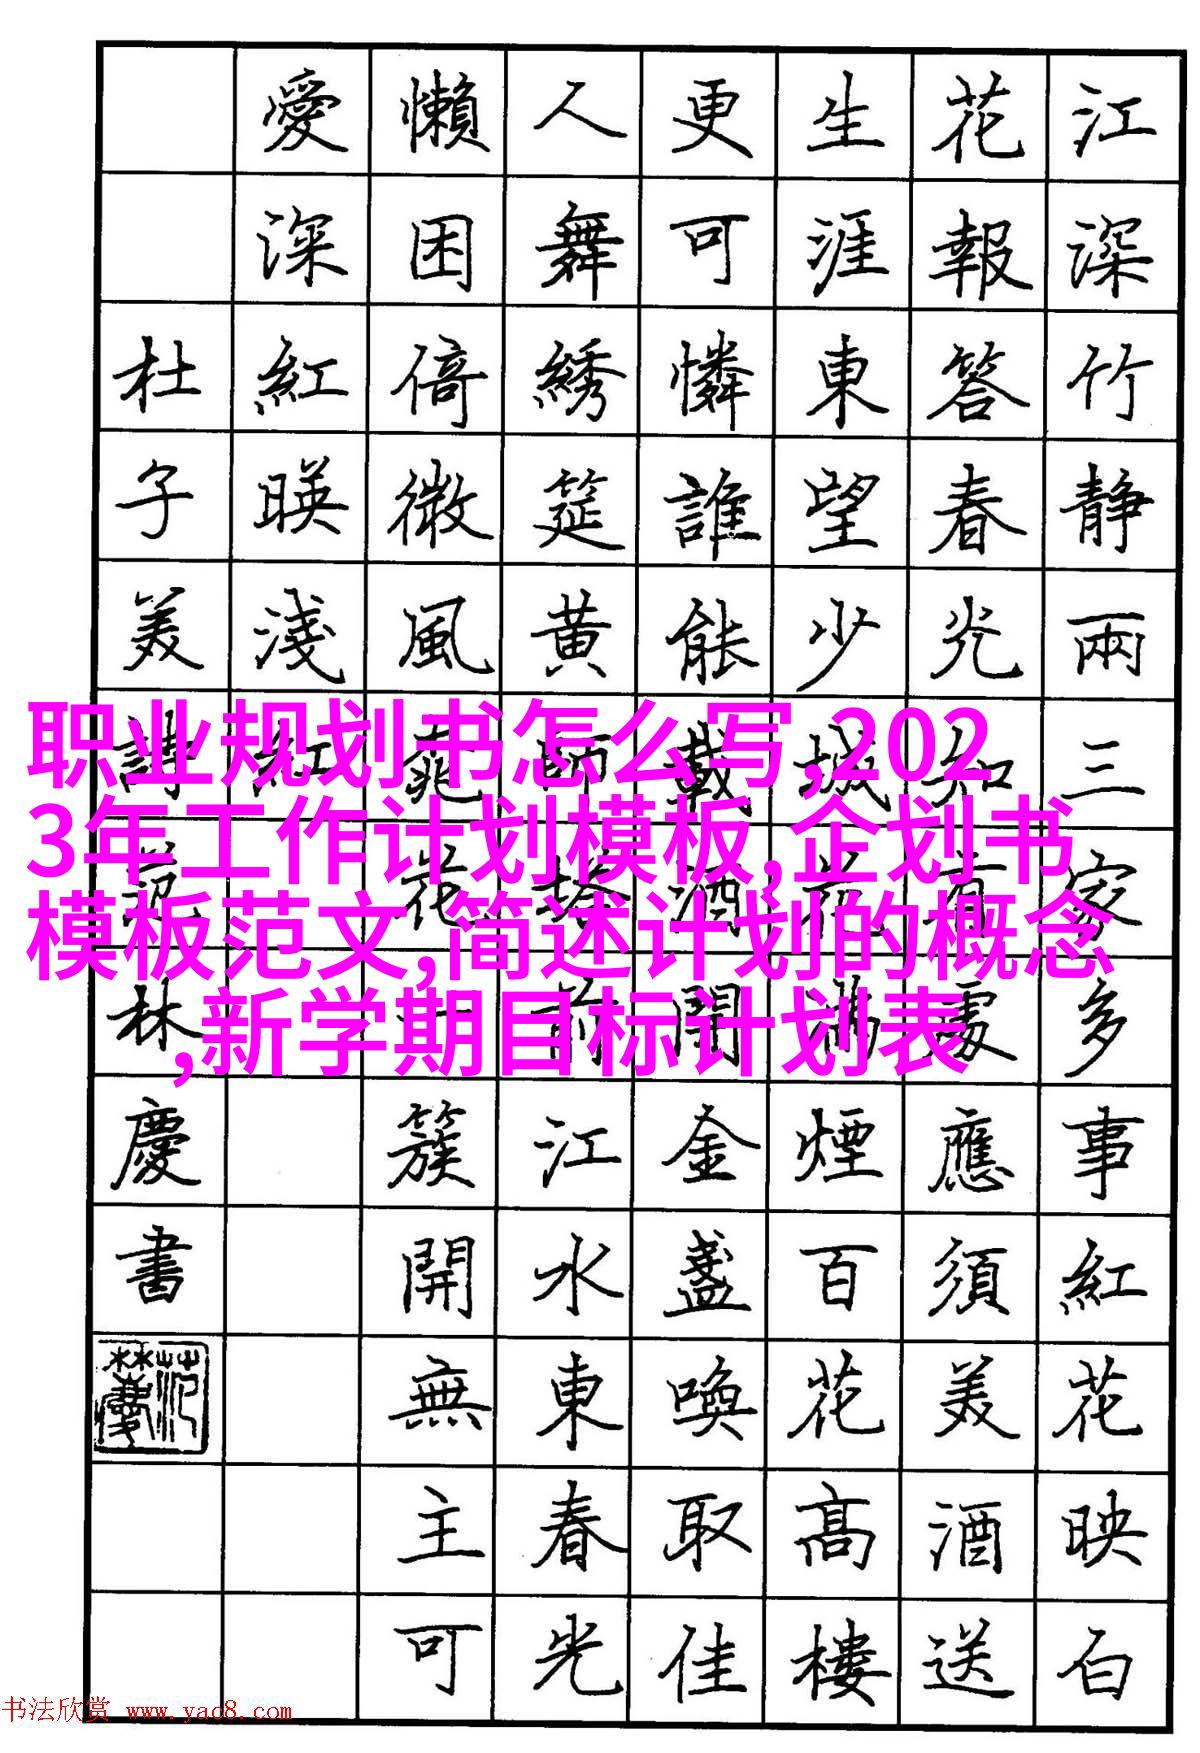 江深竹静兩三家多事紅花映白
花報答春光知有處應須美酒送
生涯東望少城花滿煙百花高樓
更可憐誰能載酒開金盞喚取佳
人舞綉筵黄師塔前江水東春光
懶困倚微風桃花一簇開無主可
愛深紅暎淺紅
杜子美詩范林慶書
职业规划书怎么写,202
3年工作计划模板,企划书
模板范文,简述计划的概念
,新学期目标计划表
书法欣赏 www.yac8.com